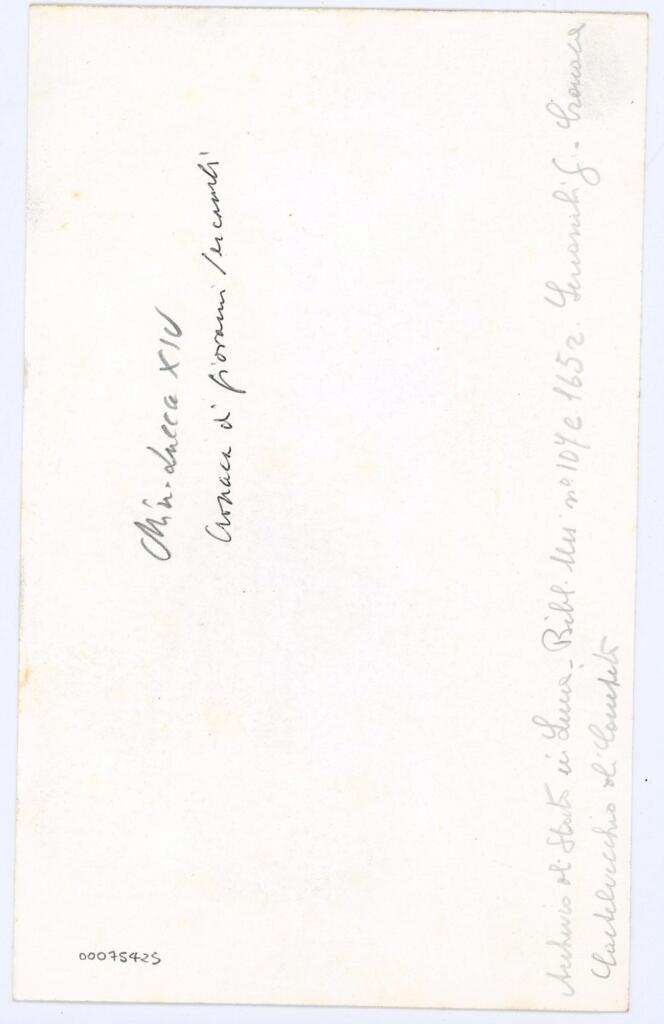 Min. Lucca XIV
Cronaca di Giovanni Sercambi
Archivio di Stato in Lucca - Bibl. Mss n° 107 e 1652. Sercambi G. - Cronaca
Castelvecchio di Compito
00075425